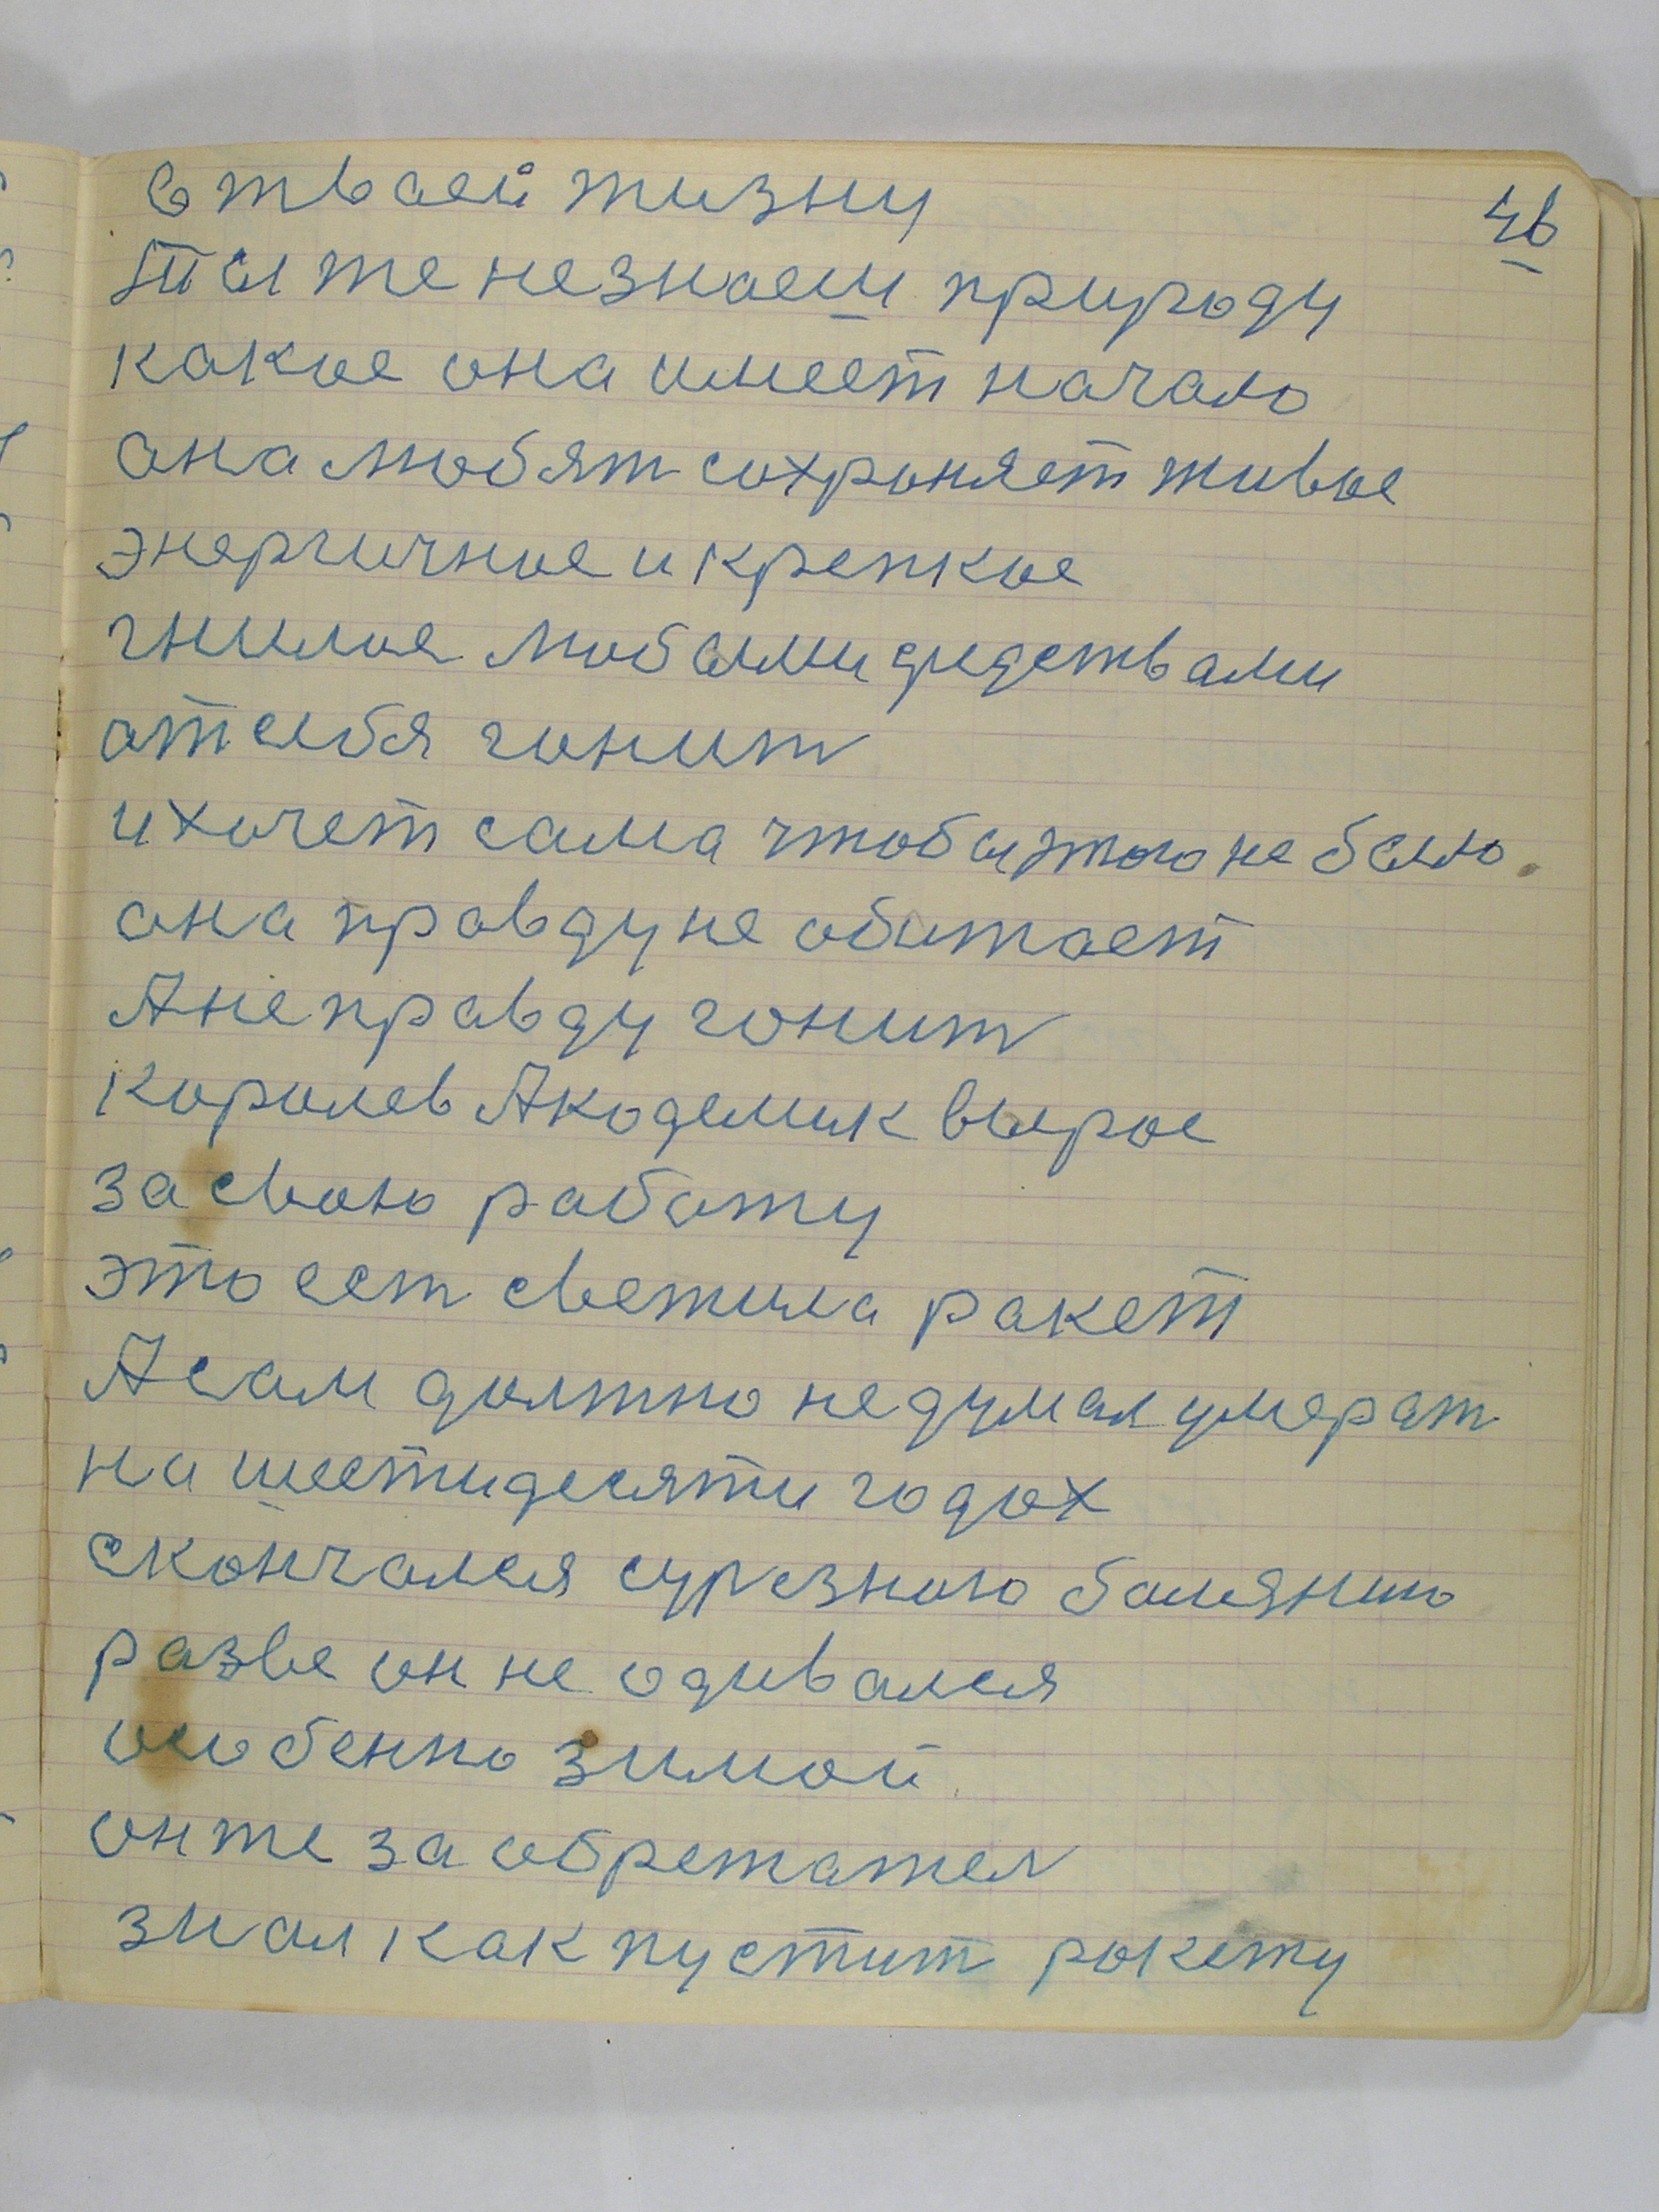 в тваей жизну
46
Ты же незнаеш природу
какое она имеет начало
она любят сохроняет живое
энергичное и крепкое
гнилое любыми средствами
от себя гонит
и хочет сама чтобы этого не было.
она правду не обитает
А не правду гонит
Королев Академик вырос
за свою работу
это ест светила ракет
А сам должно не думал умерат
на шестидесяти годах
скончался сурезною болянию
разве он не одивался
особенно зимой
он же за обретател
знал как пустит ракету